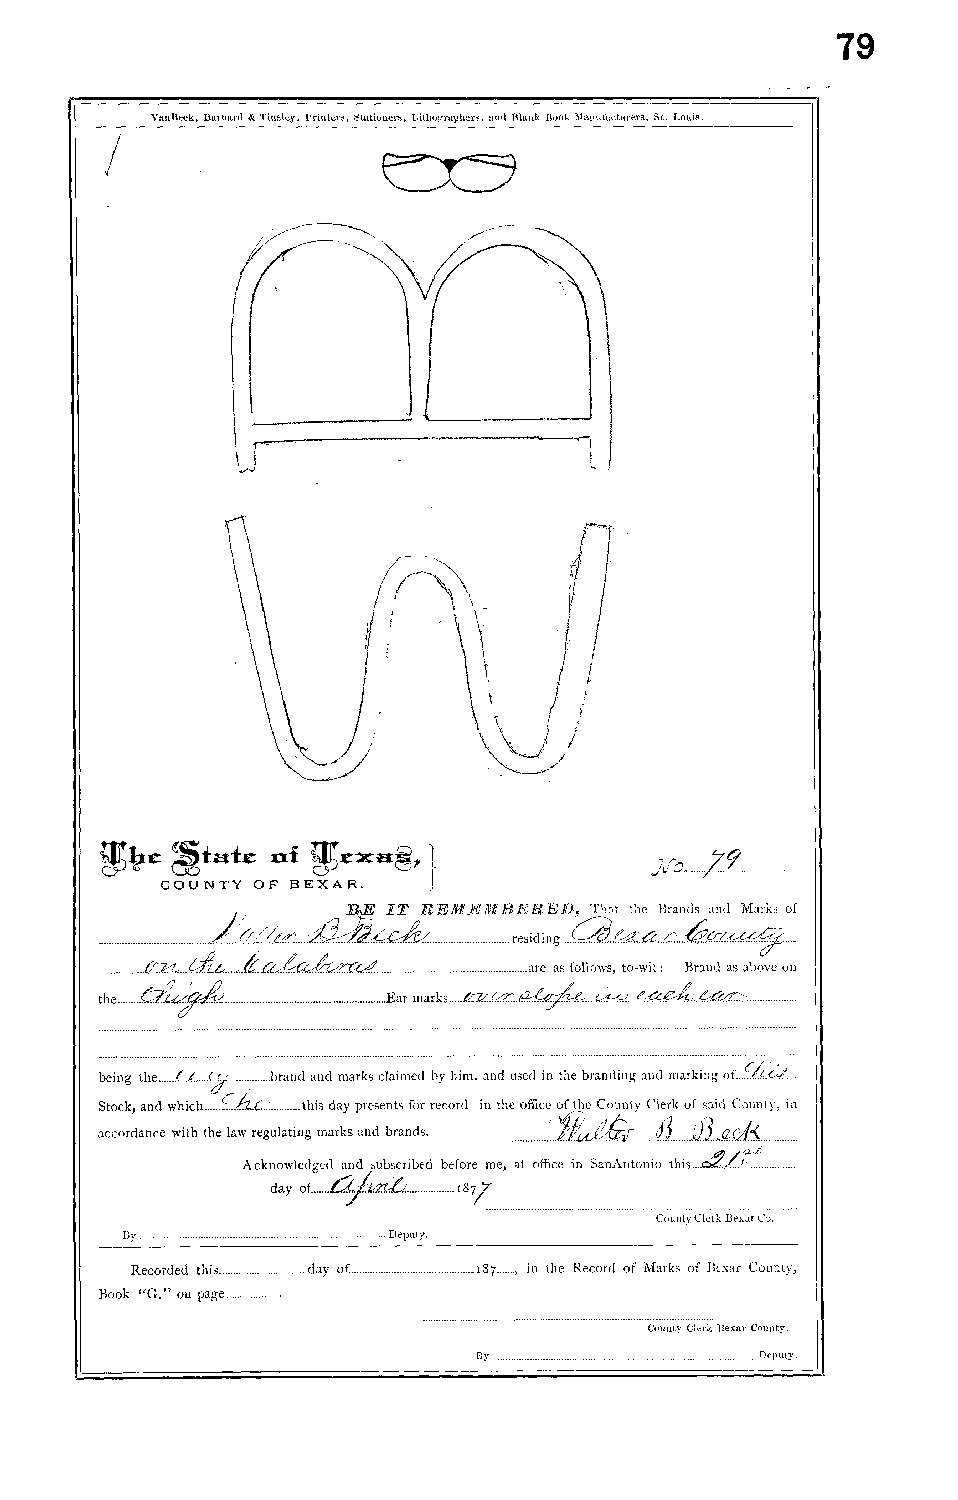 79
VanBeek, Barnard & Tinsley, Printers, Stationers, Lithographers, and Blank Book Manufacturers, St. Louis.
The State of Texas,
COUNTY OF BEXAR.
No. 79
BE IT REMEMBERED, That the Brands and Marks of
Walter B Beck residing Bexar County
on the Calabras are as follows, to-wit: Brand as above on
the thigh Ear marks over slope in each ear
being the only brand and marks claimed by him, and used in the branding and marking of his
Stock, and which he this day presents for record in the office of the County Clerk of said County, in
accordance with the law regulating marks and brands. Walter B Beck
Acknowledged and subscribed before me, at office in SanAntonio this 21st
day of April 1877
County Clerk Bexar Co.
By Deputy.
Recorded this day of 187 , in the Record of Marks of Bexar County,
Book "G." on page
County Clerk Bexar County.
By Deputy.